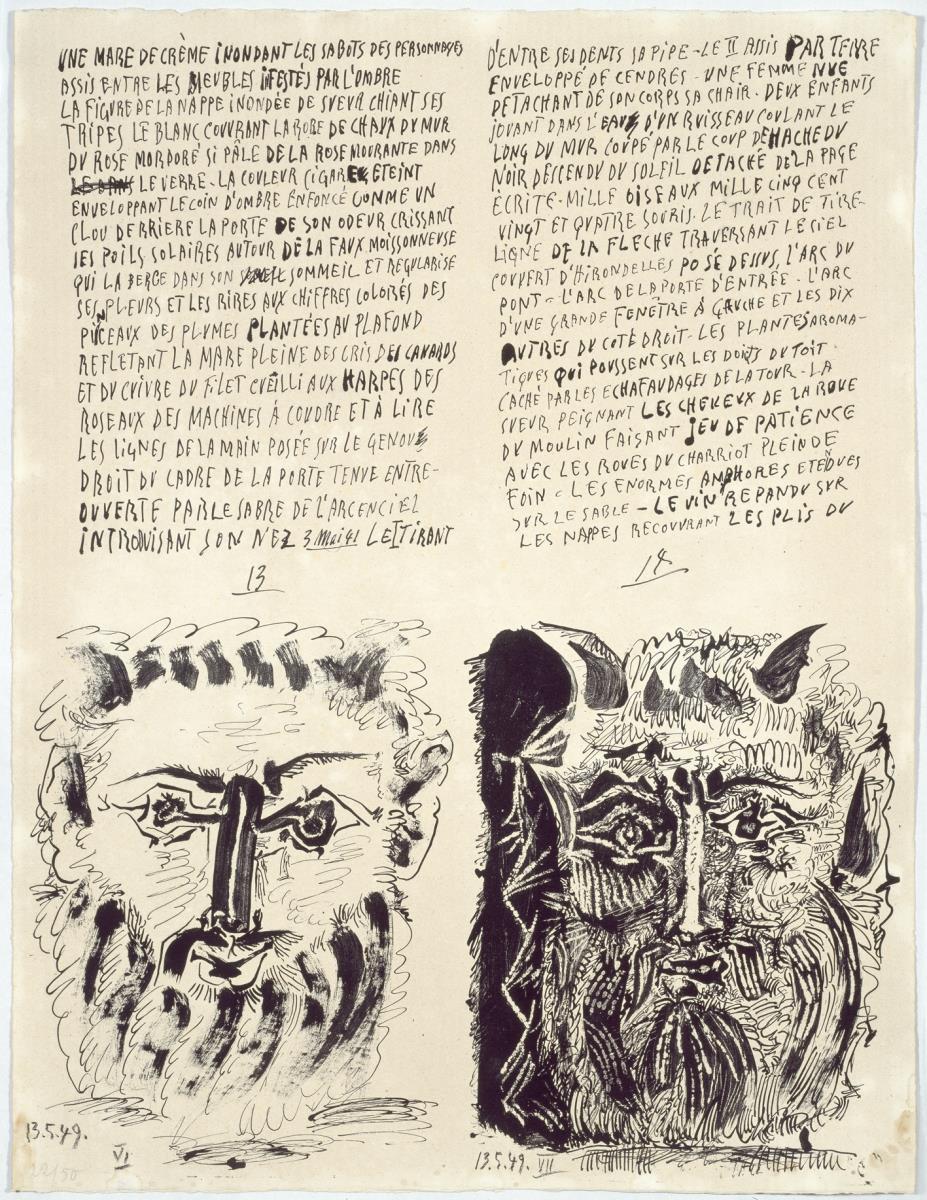 UNE MARE DE CRÈME INONDANT LES SABOTS DES PERSONNAGES
ASSIS ENTRE LES MEUBLES IFESTÉS PAR L'OMBRE
LA FIGURE DE LA NAPPE INONDÉE DE SUEUR CHIANT SES
TRIPES LE BLANC COUVRANT LA ROBE DE CHAUX DU MUR
DU ROSE MORDORÉ SI PÂLE DE LA ROSE MOURANTE DANS
LE VERRE - LA COULEUR CIGARE ÉTEINT
ENVELOPPANT LE COIN D'OMBRE ENFONCÉ COMME UN
CLOU DERRIERE LA PORTE DE SON ODEUR CRISSANT
SES POILS SOLAIRES AUTOUR DE LA FAUX MOISSONNEUSE
QUI LA BERCE DANS SON SOMMEIL ET REGULARISE
SES PLEURS ET LES RIRES AUX CHIFFRES COLORÉS DES
PINCEAUX DES PLUMES PLANTÉES AU PLAFOND
REFLÉTANT LA MARE PLEINE DES CRIS DES CANARDS
ET DU CUIVRE DU FILET CUEILLI AUX HARPES DES
ROSEAUX DES MACHINES À COUDRE ET À LIRE
LES LIGNES DE LA MAIN POSÉE SUR LE GENOU
DROIT DU CADRE DE LA PORTE TENUE ENTRE-
OUVERTE PAR LE SABRE DE L'ARC EN CIEL
INTRODUISANT SON NEZ 3 MAI 41 LE I TIRANT
13
D'ENTRE SES DENTS SA PIPE - LE II ASSIS PAR TERRE
ENVELOPPÉ DE CENDRES - UNE FEMME NUE
DETACHANT DE SON CORPS SA CHAIR. DEUX ENFANTS
JOUANT DANS L'EAU D'UN RUISSEAU COULANT LE
LONG DU MUR COUPÉ PAR LE COUP DE HACHE DU
NOIR DESCENDU DU SOLEIL DETACHÉ DE LA PAGE
ÉCRITE - MILLE OISEAUX MILLE CINQ CENT
VINGT ET QUATRE SOURIS. LE TRAIT DE TIRE-
LIGNE DE LA FLECHE TRAVERSANT LE CIEL
COUVERT D'HIRONDELLES POSÉ DESSUS, L'ARC DU
PONT - L'ARC DE LA PORTE D'ENTRÉE - L'ARC
D'UNE GRANDE FENÊTRE À GAUCHE ET LES DIX
AUTRES DU COTÉ DROIT - LES PLANTES AROMA-
TIQUES QUI POUSSENT SUR LES DOITS DU TOIT -
CACHÉ PAR LES ECHAFAUDAGES DE LA TOUR - LA
SUEUR PEIGNANT LES CHEVEUX DE LA ROUE
DU MOULIN FAISANT JEU DE PATIENCE
AVEC LES ROUES DU CHARRIOT PLEIN DE
FOIN - LES ENORMES AMPHORES ETENDUES
SUR LE SABLE - LE VIN REPANDU SUR
LES NAPPES RECOUVRANT LES PLIS DU
14
13.5.49.
VI
22/50
13.5.49. VII